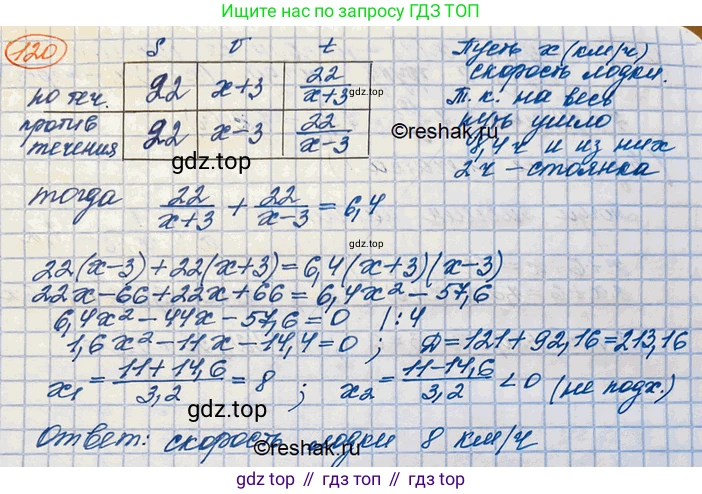 Ищите ответ по запросу ГДЗ ТОП
120
S v t
по теч. 22 x+3 22/(x+3)
против течения 22 x−3 22/(x−3)
Пусть x (км/ч)
скорость лодки.
Т. к. на весь
путь ушло
8,4 ч и из них
2 ч – стоянка
©reshak.ru
gdz.top
тогда 22/(x+3) + 22/(x−3) = 6,4
gdz.top
gdz.top
22(x−3)+22(x+3)=6,4(x+3)(x−3)
22x−66+22x+66=6,4x²−57,6
6,4x²−44x−57,6=0 /:4
1,6x²−11x−14,4=0 ; Д=121+92,16=213,16
x₁=(11+14,6)/3,2=8 ; x₂=(11−14,6)/3,2<0 (не подх.)
gdz.top
Ответ: скорость лодки 8 км/ч
©reshak.ru
gdz.top // gdz.top // gdz.top